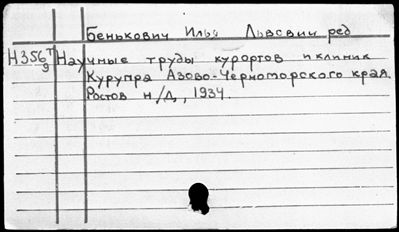 Бенькович Илья Львович ред
Н356 т/9 Научные труды курортов и клиник
Курупра Азово-Черноморского края.
Ростов н/Д, 1934.